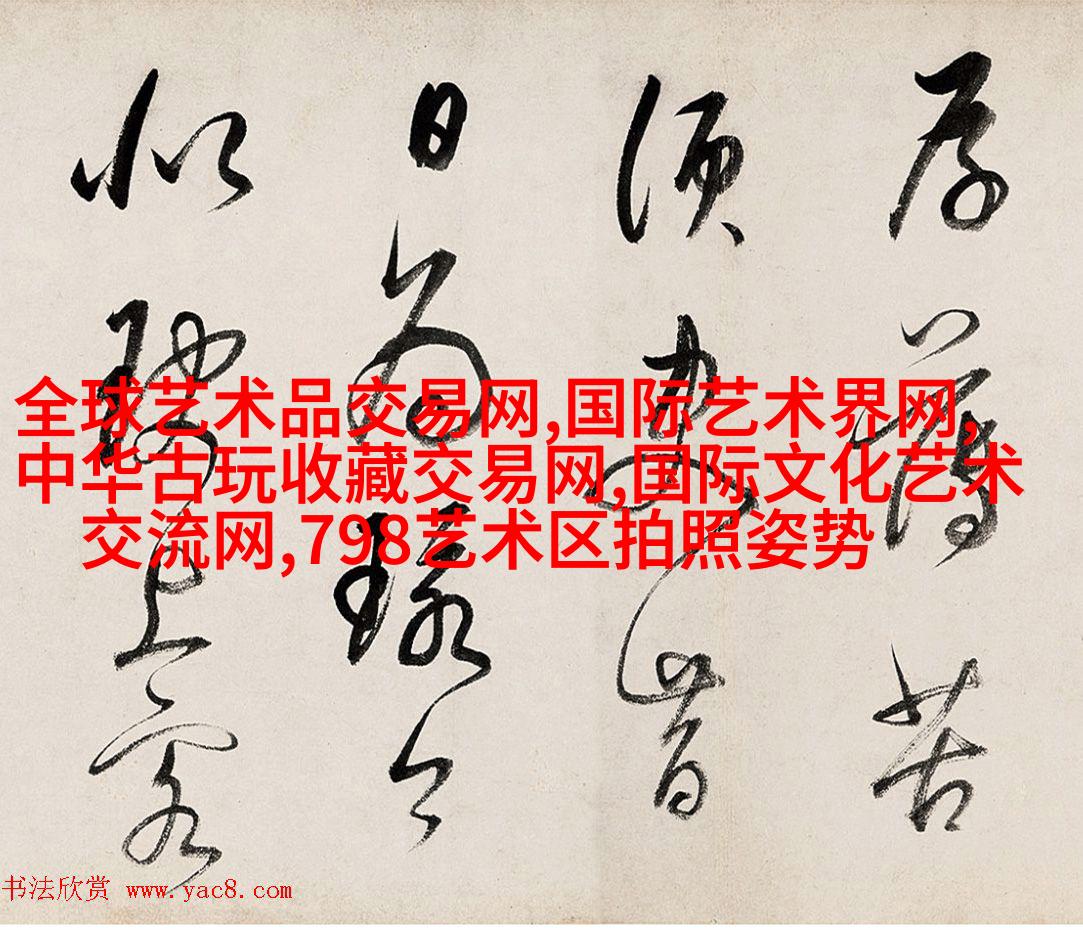 厚薄苦
須臾昔
日為環今
似玦上客
全球艺术品交易网,国际艺术界网,
中华古玩收藏交易网,国际文化艺术
交流网,798艺术区拍照姿势
书法欣赏 www.yac8.com